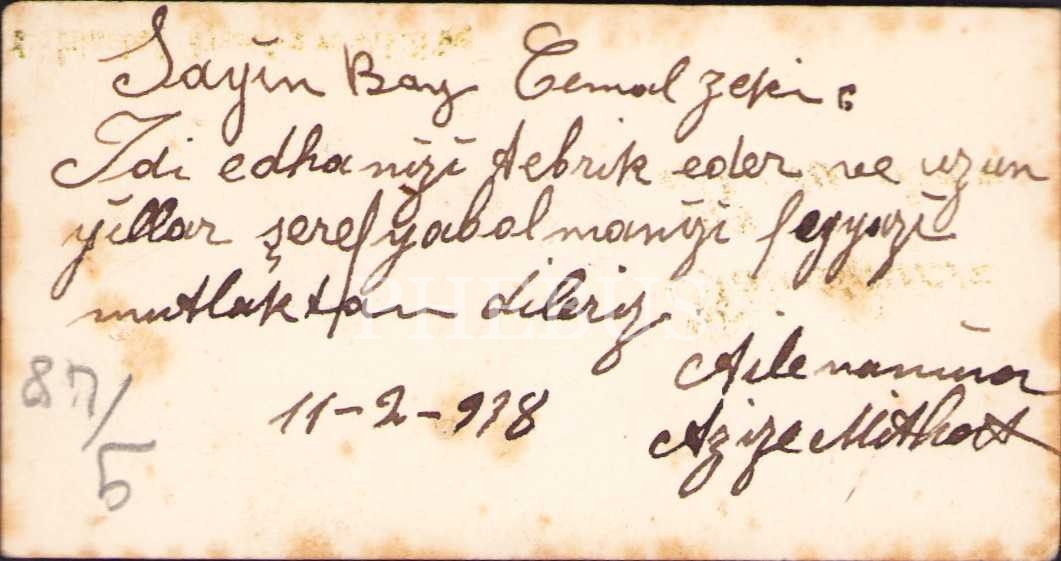 Sayın Bay Cemal Zeki.
Idi edhanızı tebrik eder ve uzun
yıllar şerefyabolmanızı feyyazı
mutlaktan dileriz
PHEBUS
Aile namına
Azize Mithat
11-2-938
87/5